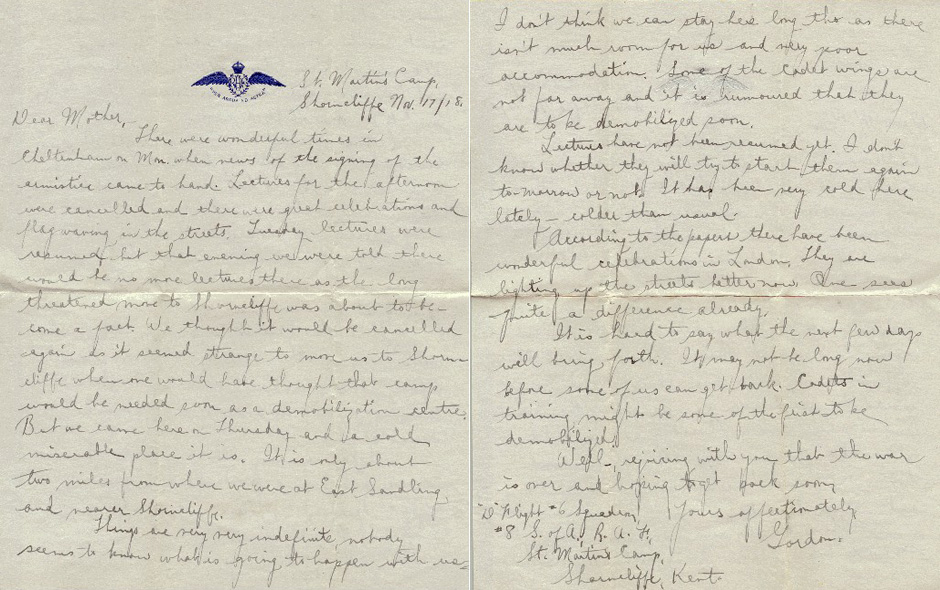 St. Martin's Camp,
Shorncliffe Nov. 17/18.
Dear Mother,-
There were wonderful times in
Cheltenham on Mon. when news of the signing of the
armistice came to hand. Lectures for the afternoon
were cancelled and there were great celebrations and
flag waving in the streets. Tuesday lectures were
resumed but that evening we were told there
would be no more lectures there as the long
threatened move to Shorncliffe was about to be-
come a fact. We thought it would be cancelled
again as it seemed strange to move us to Shorn-
cliffe when one would have thought that camp
would be needed soon as a demobilization centre.
But we came here on Thursday and a cold
miserable place it is. It is only about
two miles from where we were at East Sandling
and nearer Shorncliffe.
Things are very very indefinite, nobody
seems to know what is going to happen with us-
I don't think we can stay here long tho as there
isn't much room for us and very poor
accommodation. Some of the Cadet wings are
not far away and it is rumoured that they
are to be demobilized soon.
Lectures have not been resumed yet. I don't
know whether they will try to start them again
to-morrow or not. It has been very cold here
lately - colder than usual.
According to the papers there have been
wonderful celebrations in London. They are
lighting up the streets better now. One sees
quite a difference already.
It is hard to say what the next few days
will bring forth. It may not be long now
before some of us can get back. Cadets in
training might be some of the first to be
demobilized.
Well, rejoicing with you that the war
is over and hoping to get back soon,
Yours affectionately
Gordon.
"D" Flight #6 Squadron,
#8 S. of A., R.A.F.,
St. Martin's Camp,
Shorncliffe, Kent.